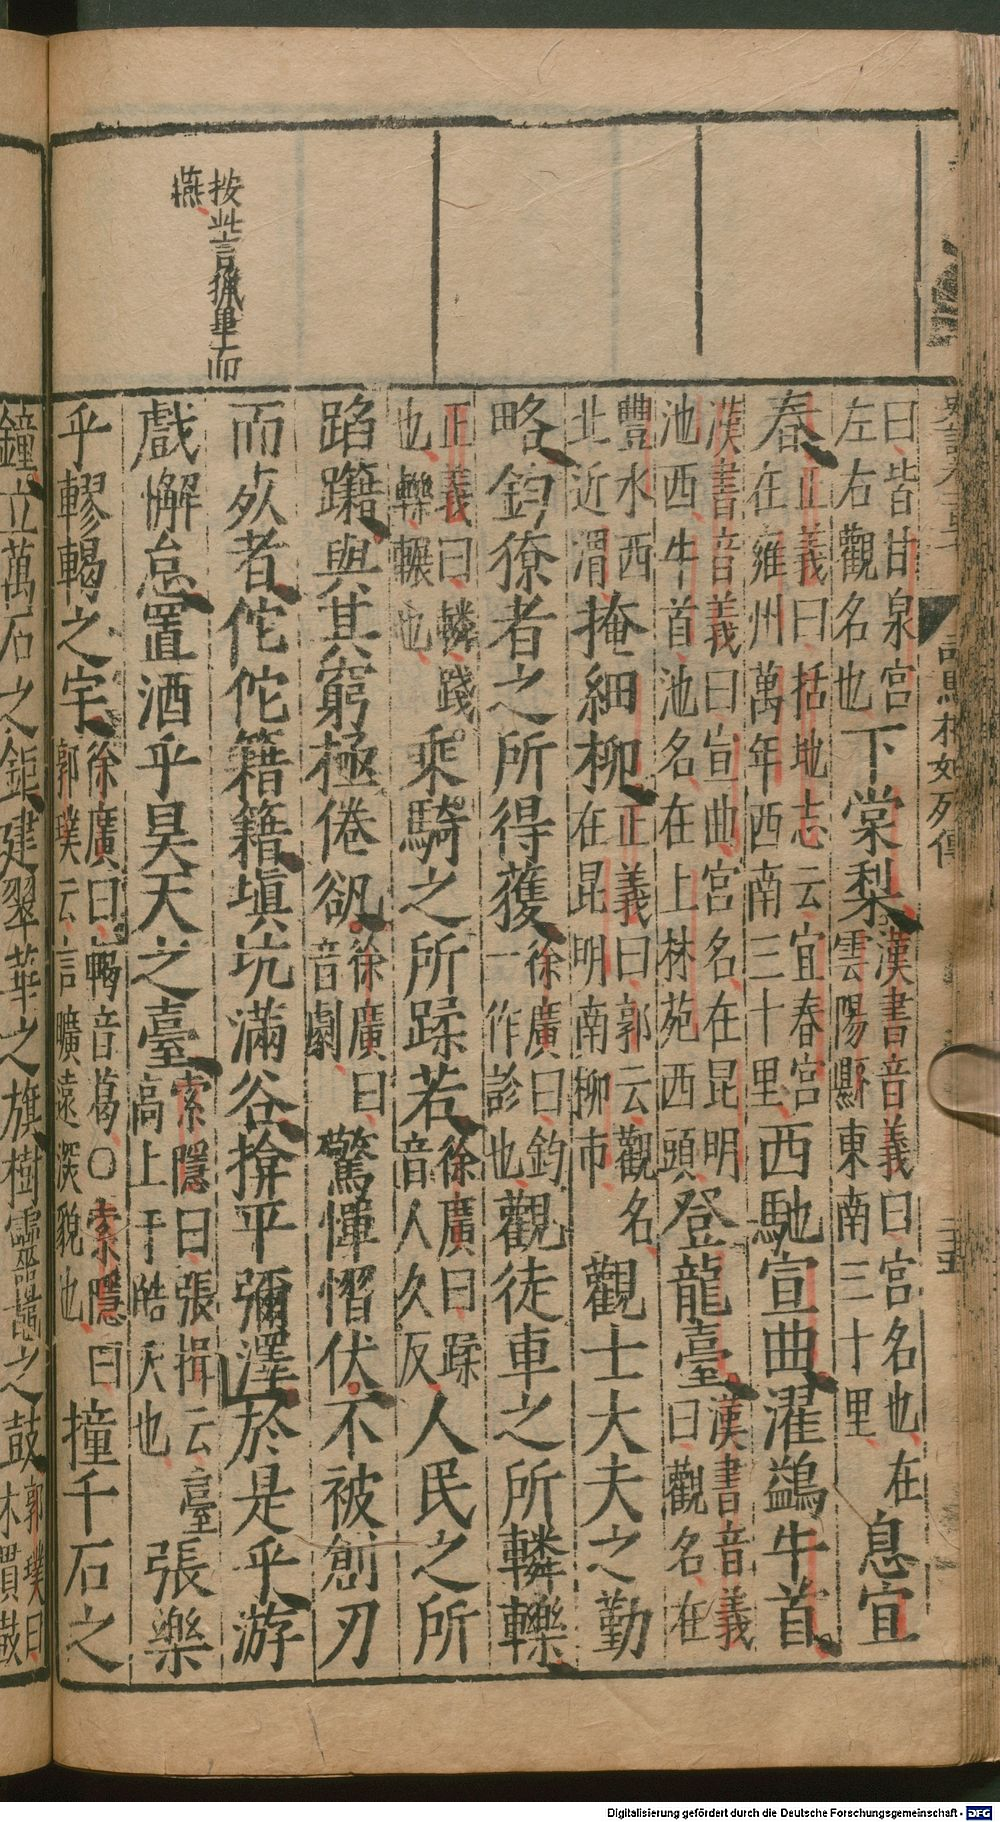 按此言獵畢而
燕
曰皆甘泉宮
左右觀名也
下棠梨
漢書音義曰宮名也在
雲陽縣東南三十里
息宜
春
正義曰括地志云宜春宮
在雍州萬年西南三十里
西馳宣曲濯鷁牛首
漢書音義曰宣曲宮名在昆明
池西牛首池名在上林苑西頭
登龍臺
漢書音義
曰觀名在
豐水西
北近渭
掩細柳
正義曰郭云觀名
在昆明南柳市
觀士大夫之勤
略鈞獠者之所得獲
徐廣曰鈞
一作診也
觀徒車之所轔轢
正義曰轔踐
也轢輾也
乘騎之所蹂若
徐廣曰蹂
音人久反
人民之所
蹈躤與其窮極倦㕁
徐廣曰
音劇
驚憚慴伏不被創刃
而死者佗佗籍籍塡坑滿谷揜平彌澤於是乎游
戲懈怠置酒乎昊天之臺
索隱曰張揖云臺
高上干皓天也
張樂
乎轇輵之宇
徐廣曰輵音葛○索隱曰
郭璞云言曠遠深貌也
撞千石之
鐘立萬石之鉅建翠華之旗樹靈鼉之鼓
郭璞曰
木貫鼓
司馬相如列傳
Digitalisierung gefördert durch die Deutsche Forschungsgemeinschaft - DFG